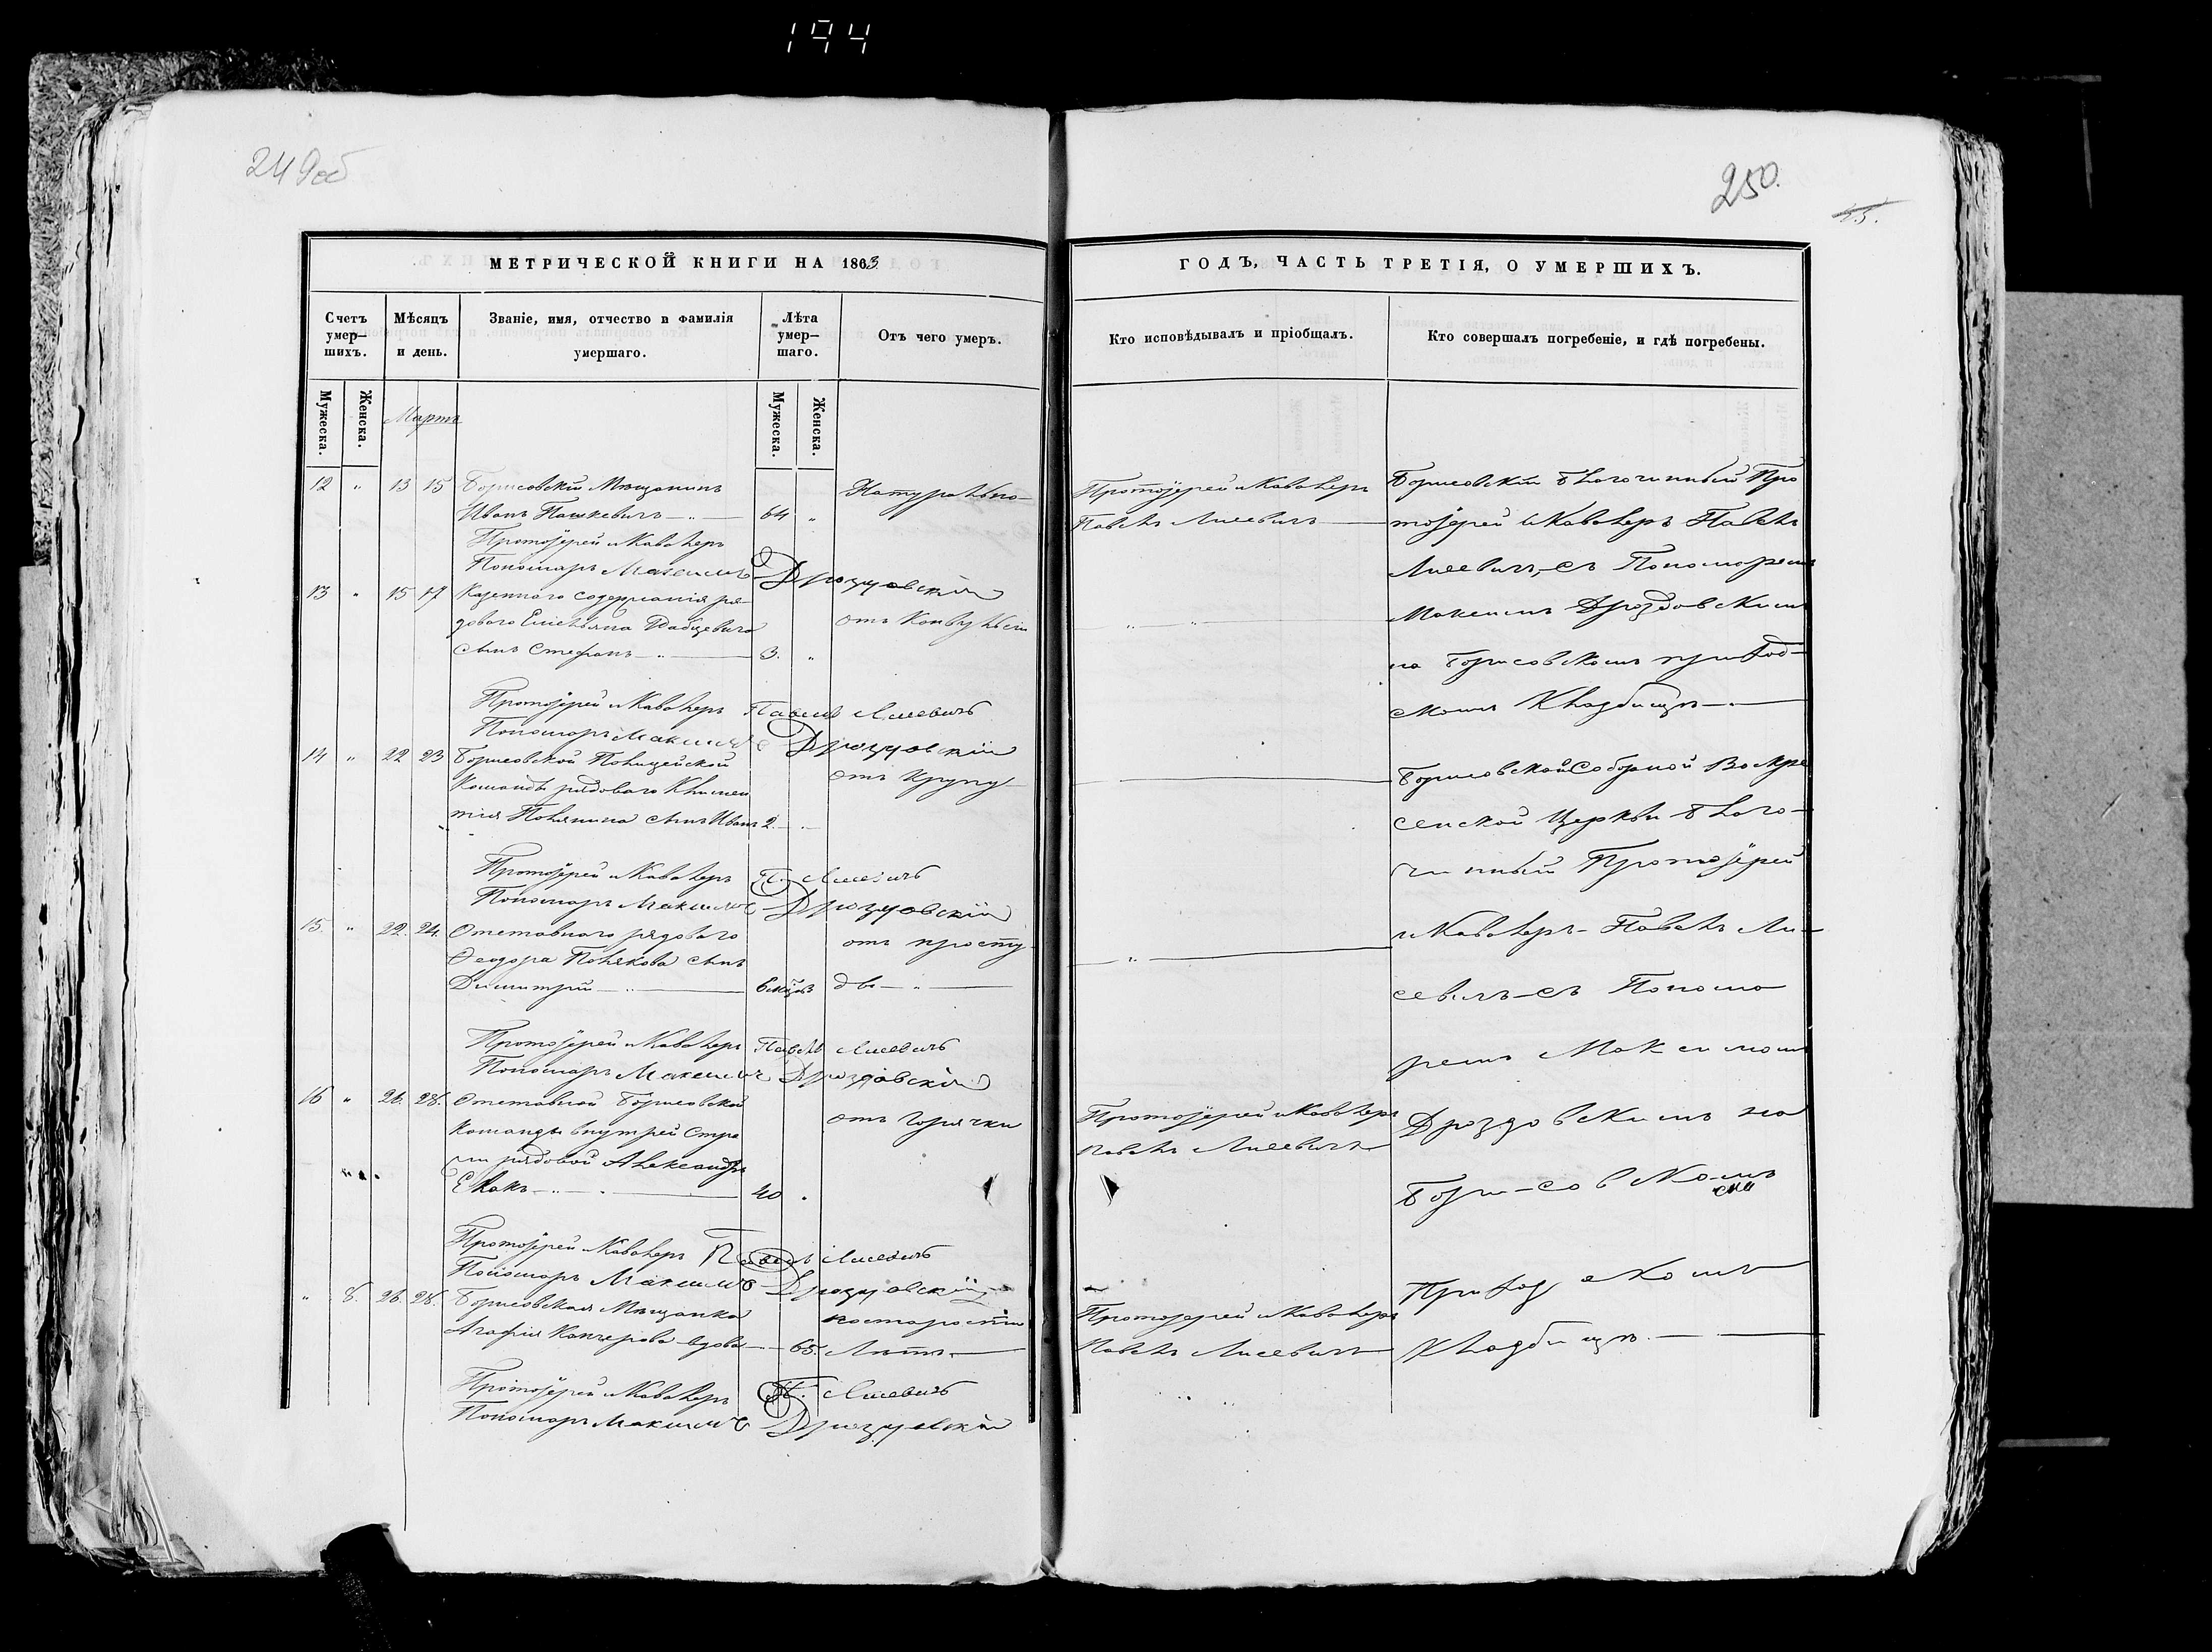 194
249об
250.
45.
МЕТРИЧЕСКОЙ КНИГИ НА 1863
ГОДЪ, ЧАСТЬ ТРЕТІЯ, О УМЕРШИХЪ.
Счетъ умер-шихъ.
Мѣсяцъ и день.
Званіе, имя, отчество и фамилія умершаго.
Лѣта умер-шаго.
Отъ чего умеръ.
Кто исповѣдывалъ и пріобщалъ.
Кто совершалъ погребеніе, и гдѣ погребены.
Мужеска.
Женска.
Мартъ
Мужеска.
Женска.
12 " 13 15 Борисовскій Мѣщанинъ
Иванъ Пашкевичъ — 64 "
Натурально
Протоіерей и Кавалеръ
Пономарь Максимъ Дроздовскій
13 " 15 17 Казеннаго содержанія ря-
доваго
сынъ Стефанъ — 3. "
отъ Конвульсіи
Протоіерей и Кавалеръ Павелъ Лисевичъ
Пономарь Максимъ Дроздовскій
14 " 22 23 Борисовской Полицейской
Команды рядоваго Климен
тія сынъ Иванъ 2.
отъ крупу
Протоіерей и Кавалеръ П. Лисевичъ
Пономарь Максимъ Дроздовскій
15. " 22. 24. Отставнаго рядоваго
Феодора Полякова сынъ
Димитрій — 6 мѣцовъ
отъ просту
ды — " —
Протоіерей и Кавалеръ Павелъ Лисевичъ
Пономарь Максимъ Дроздовскій
16 " 26. 28. Отставной Борисовской
Команды внутрей Стра
жи рядовой Александръ
— 40 "
отъ Горячки
Протоіерей Кавалеръ Павелъ Лисевичъ
Пономарь Максимъ Дроздовскій
" 8. 26. 28. Борисовская Мѣщанка
Агафія вдова — 65.
по старости
Лѣтъ —
Протоіерей и Кавалеръ П. Лисевичъ
Пономарь Максимъ Дроздовскій
Протоіерей и Кавалеръ
Павелъ Лисевичъ —
" "
"
Протоіерей и Кавалеръ
Павелъ Лисевичъ
Протоіерей и Кавалеръ
Павелъ Лисевичъ
Борисовскій Благочинный Про
тоіерей и Кавалеръ Павелъ
Лисевичъ, съ Пономаремъ
Максимъ Дроздовскимъ
на Борисовскомъ приход-
скомъ Кладбищѣ —
Борисовской Соборной Воскре
сенской Церкви Благо-
чинный Протоіерей
и Кавалеръ Павелъ Ли-
севичъ съ Понома
ремъ Максимомъ
Дроздовскимъ на
Борисовскомъ
Приходскомъ
Кладбищѣ. —